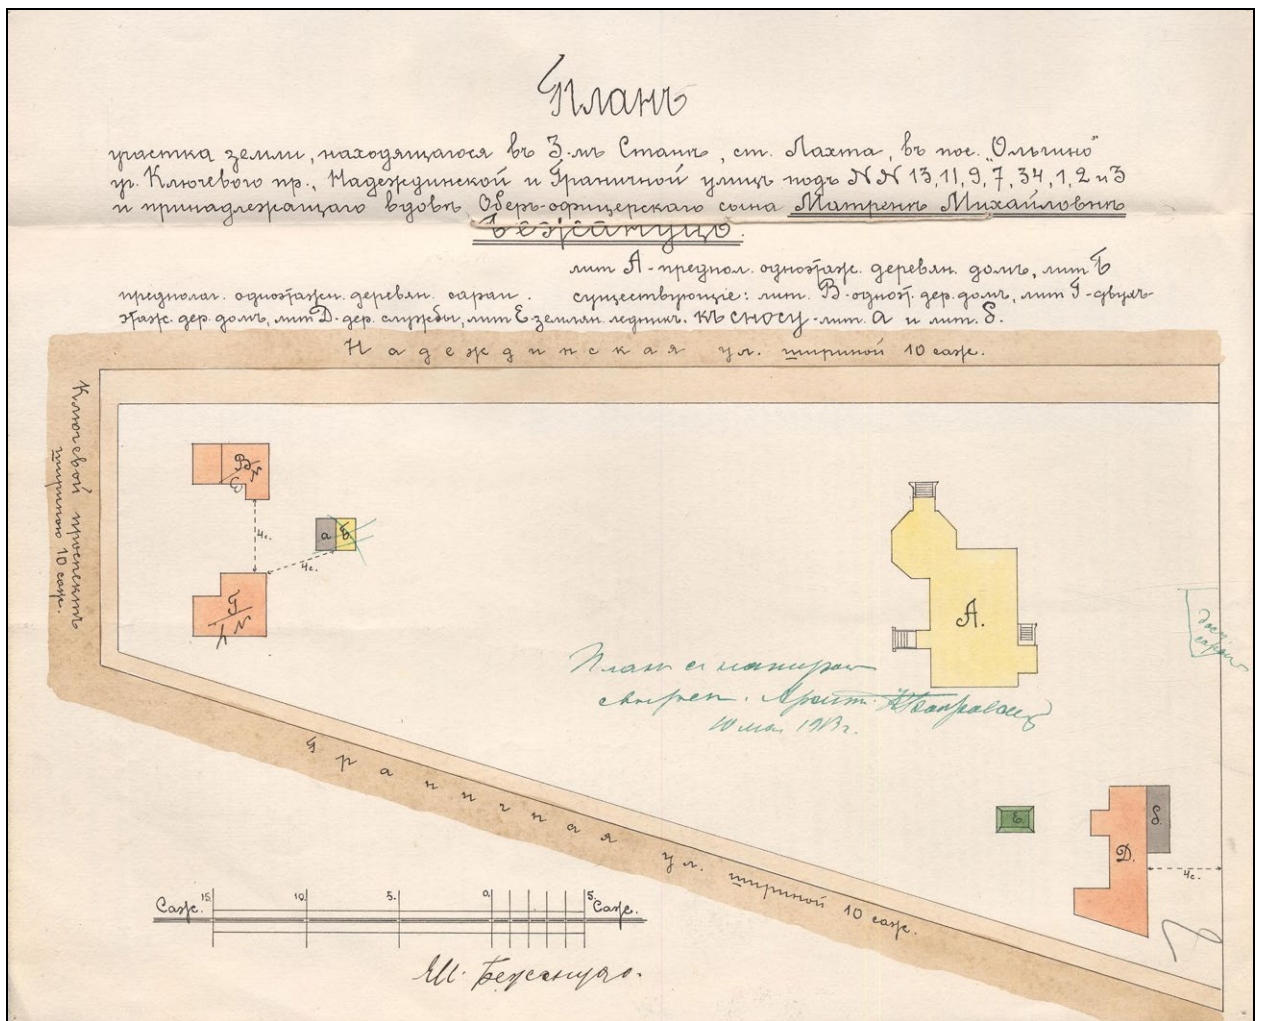 Планъ
участка земли, находящагося въ 3-мъ Станѣ, ст. Лахта, въ пос. „Ольгино"
уг. Ключевого пр., Надеждинской и Граничной улицъ подъ NN 13, 11, 9, 7, 34, 1, 2 и 3
и принадлежащаго вдовѣ Оберъ-офицерскаго сына Матренѣ Михайловнѣ
Бежануцо.
лит А - предпол. одноэтаж. деревян. домъ, лит Б
предполаг. одноэтажн. деревян. сараи. существующіе: лит. В - одноэт. дер. домъ, лит Г - двухъ-
этаж. дер. домъ, лит Д - дер. службы, лит Е - землян. ледникъ. къ сносу - лит. а и лит. б.
Надеждинская ул. шириной 10 саж.
Ключевой проспектъ
шириною 10 саж.
В
4с.
а
4с.
Г
А.
План с натурой
10 мая 1913 г.
сарай
Е.
Д.
б
4с.
Граничная ул. шириной 10 саж.
Саж. 15 10 5. 0 5. Саж.
М. Бежануцо.